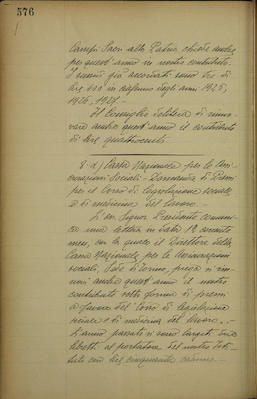 576
Campi Sacri alla Patria chiede anche
per quest'anno un nostro contributo.
I sussidi già accordati sono due di
lire 500 in ciascuno degli anni 1925,
1926, 1927.
Il Consiglio delibera di
anche quest'anno il contributo
di lire quattrocento.
8. d) Cassa Nazionale per le
Sociali - Domanda di
per il Corso di Legislazione sociale
e di medicina del lavoro.
L'on. Signor Presidente comuni-
ca una lettera in data 12 corrente
mese, con la quale il Direttore della
Cassa Nazionale per le Assicurazioni
sociali, Sede di Torino, prega di
anche quest'anno il nostro
contributo sotto forma di premi
a favore del Corso di legislazione
sociale e di medicina del lavoro.
L'anno passato si sono largiti due
libretti al portatore del nostro Isti-
tuto con lire cinquanta